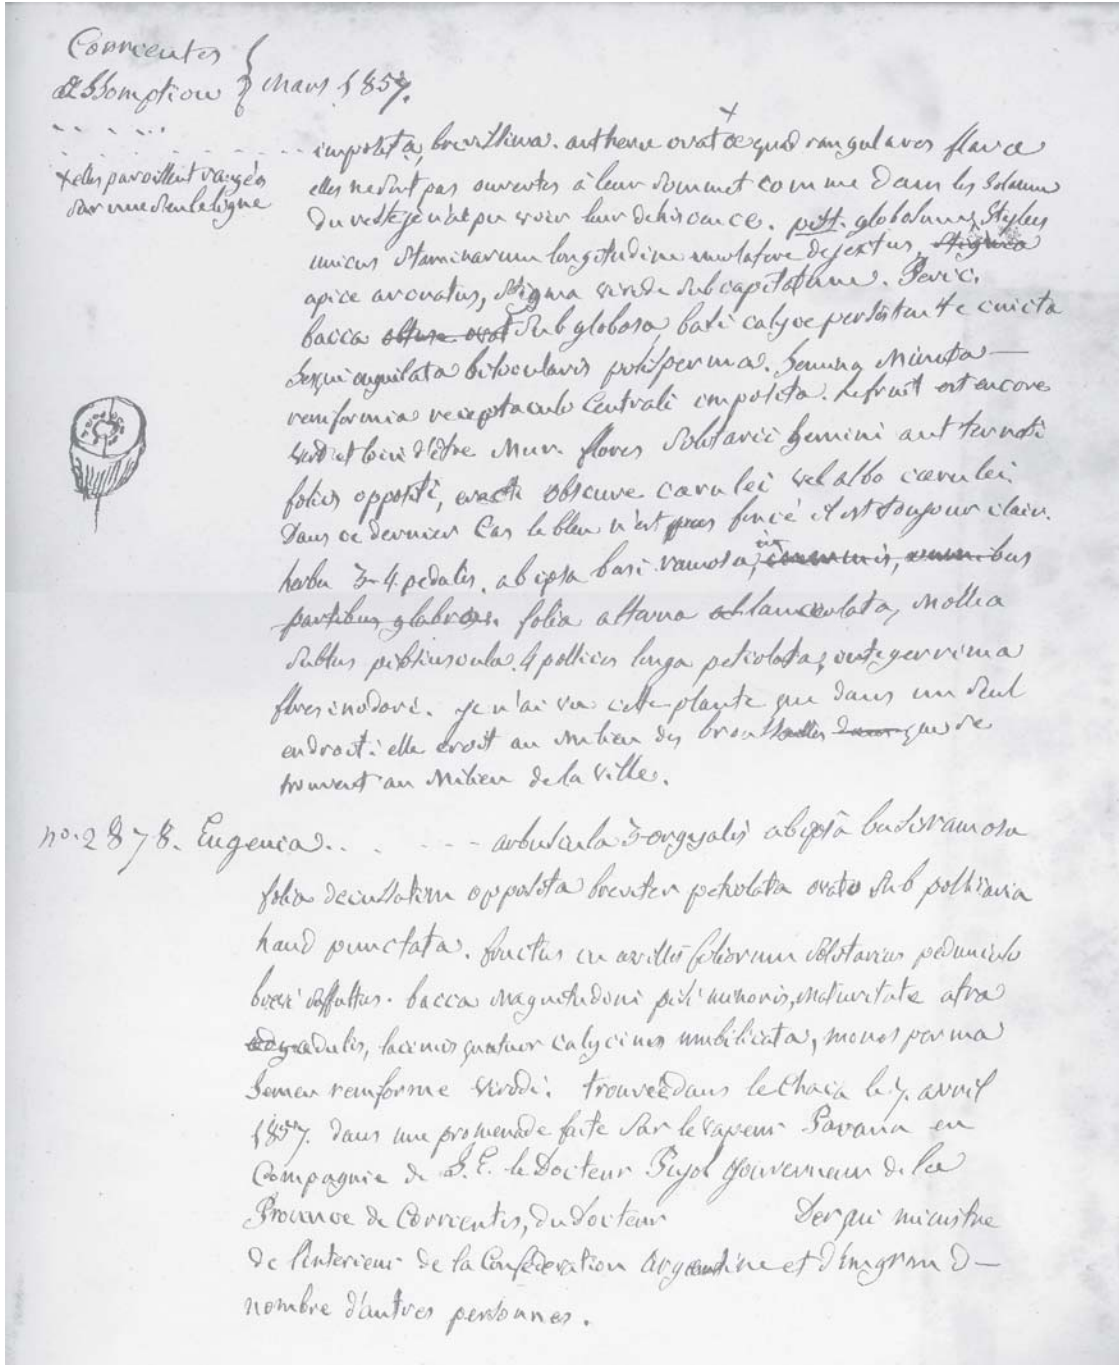 Corrientes
Assomption } Mars 1857.
imposita, brevissima. antherae ovatae quadrangulares flavae
x elles paroissent rangés
sur une seule ligne
elles ne sont pas ouvertes à leur sommet comme dans les Solanum
du reste je n'ai pu voir leur dehiscence. pist. globosum, Stylus
unicus staminorum longitudine dejectus, stigma
apice arcuatus, stigma viride subcapitatum. Peric.
bacca obtuse ovat subglobosa, basi calyce persistente cincta
bilocularis polysperma. Semina minuta
reniformia receptaculo centrali imposita. Le fruit est encore
verd et loin d'être mur. flores solitarii gemini aut ternati
foliis oppositi, erecti obscure caerulei vel albo caerulei
Dans ce dernier cas le bleu n'est pas foncé il est toujour clair.
herba 3-4 pedalis. ab ipsa basi ramosa, omnibus
partibus glabra. folia alterna lanceolata, mollia
subtus 4 pollices longa petiolata, integerrima
flores inodori. je n'ai vu cette plante que dans un seul
endroit: elle croit au milieu des broussailles dans que se
trouvent au milieu de la ville.
no. 2878. Eugenia. . . - - - arbuscula 3-orgyalis ab ipsâ basi ramosa
folia decussatim opposita breviter petiolata ovata sub pollicaria
haud punctata. fructus in axillis foliorum solitarius pedunculo
brevi suffultus. bacca magnitudini pisi minoris, maturitate atra
edulis, laciniis quatuor calycinis umbilicata, monosperma
Semen reniforme viride. trouvée dans le Chaca le 7. avril
1857. dans une promenade faite sur le vapeur Parana en
Compagnie de S. E. le Docteur Pujol gouverneur de la
Province de Corrientes, du docteur Derqui ministre
de l'interieur de la Confederation argentine et d'un grand
nombre d'autres personnes.